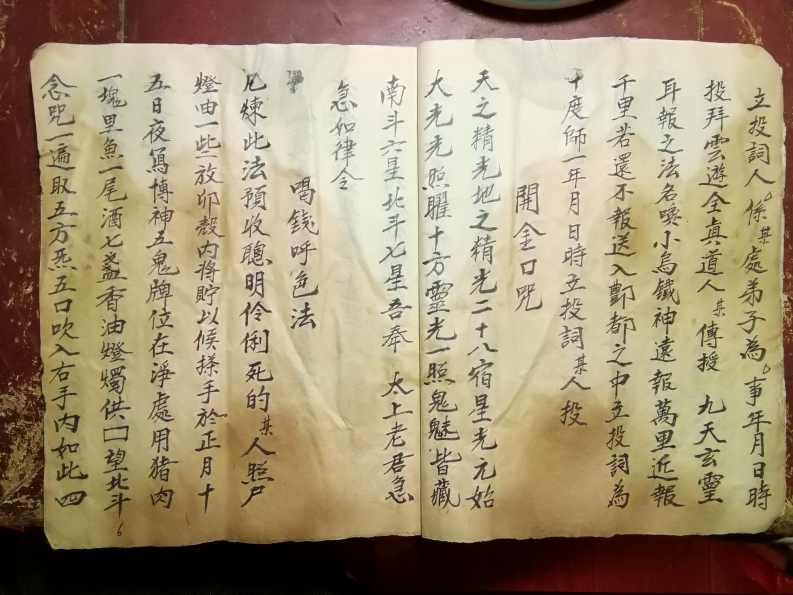 立投詞人係某處弟子為事年月日時
投拜雲遊全真道人某傳授 九天玄靈
耳報之法名喚小烏鐵神遠報萬里近報
千里若還不報送入酆都之中立投詞為
十度師一年月日時立投詞某人投
開金口咒
天之精光地之精光二十八宿星光元始
大光光照耀十方靈光一照鬼魅皆藏
南斗六星北斗七星吾奉 太上老君急
急如律令
喝錢呼色法
凡煉此法預收聰明伶俐死的某人照尸
燈油一些放卵殼内將貯以候搽手於正月十
五日夜寫博神五鬼牌位在淨處用猪肉
一塊里魚一尾酒七盞香油燈燭供囗望北斗
念咒一遍取五方炁五口吹入右手内如此四
6